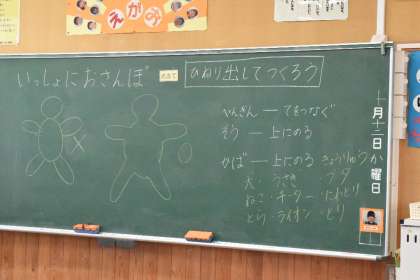 えがお
いっしょにおさんぽ
めあて
ひねり出してつくろう
やぎさん ― てをつなぐ
ぞう ― 上にのる
かば ― 上にのる きょうりゅう
犬・うさぎ ・ブタ
ねこ・チーター・にわとり
とら・ライオン・とり
十月十二日か曜日